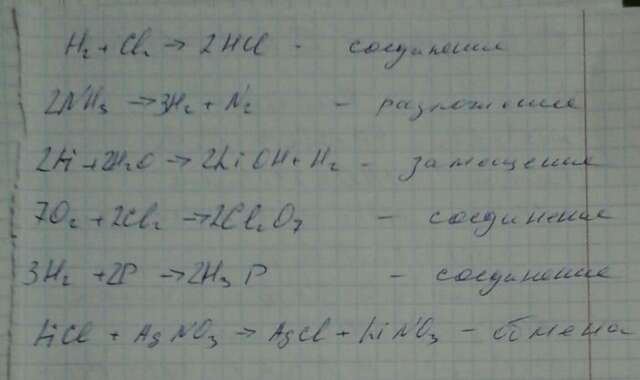 H₂ + Cl₂ → 2HCl - соединения
2NH₃ → 3H₂ + N₂ - разложение
2Li + 2H₂O → 2LiOH + H₂ - замещения
7O₂ + 2Cl₂ → 2Cl₂O₇ - соединение
3H₂ + 2P → 2H₃P - соединение
LiCl + AgNO₃ → AgCl + LiNO₃ - обмена